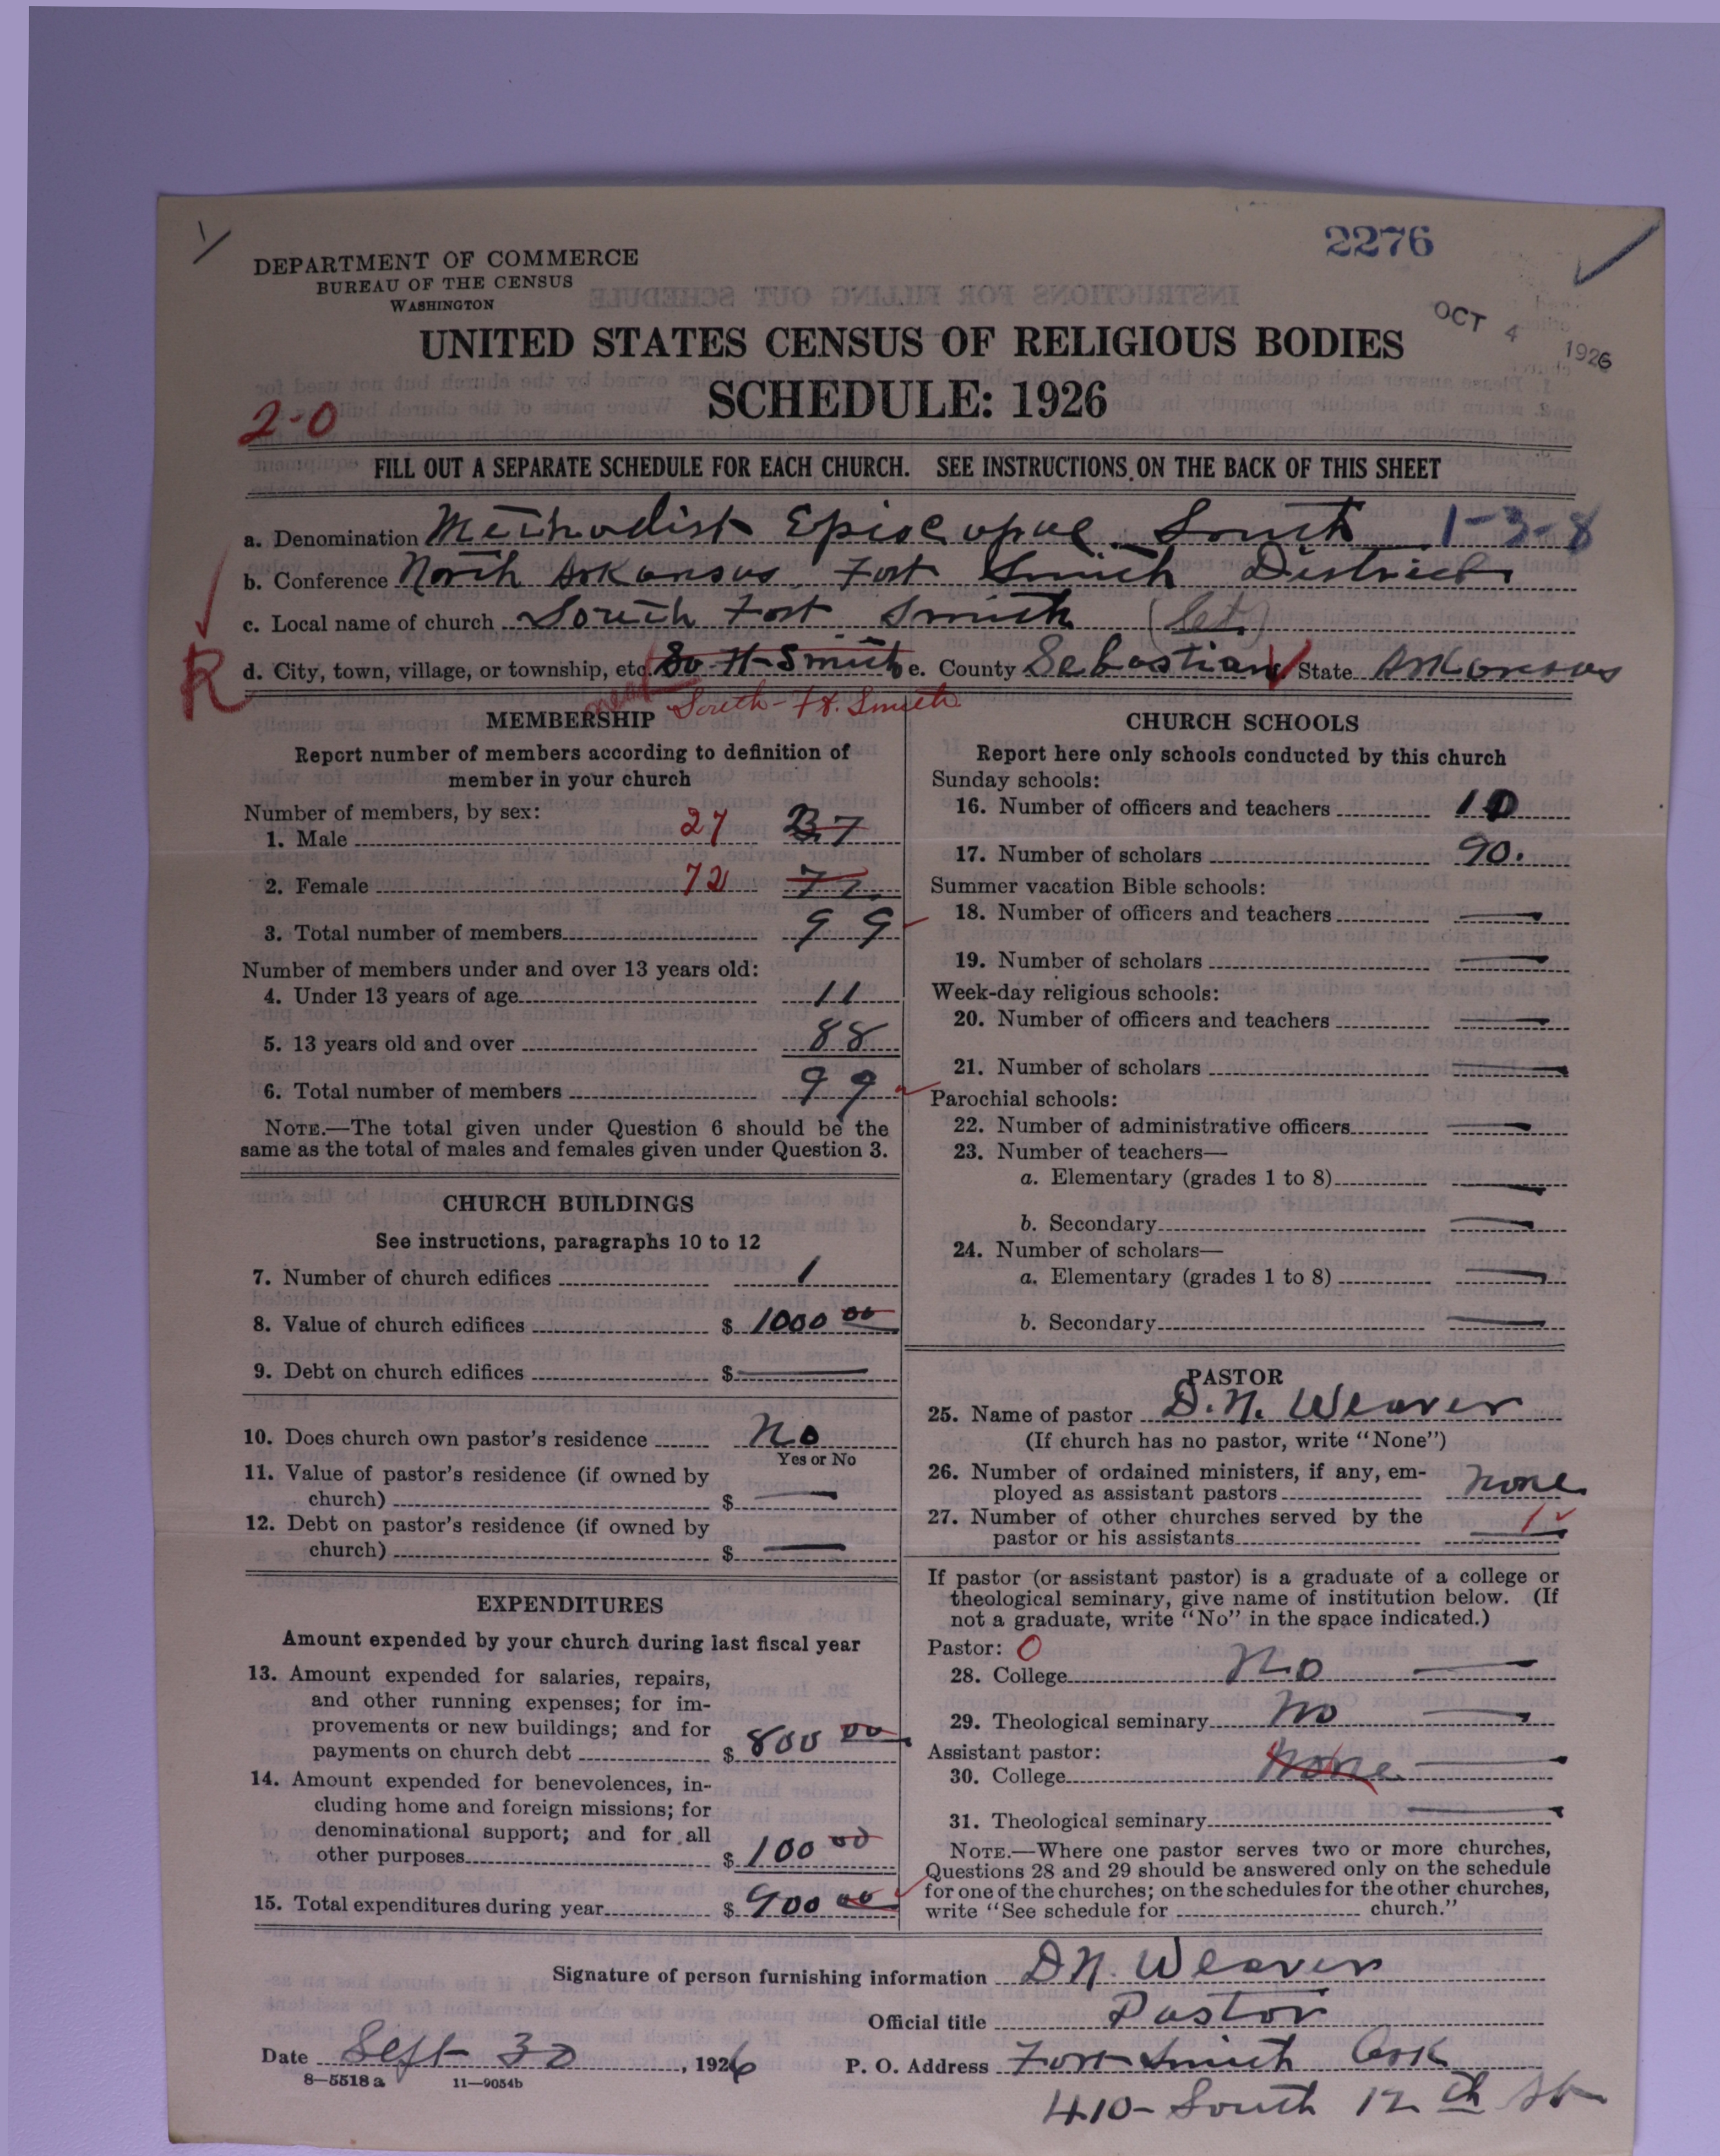 2276
DEPARTMENT OF COMMERCE
BUREAU OF THE CENSUS
WASHINGTON
OCT 4 1926
UNITED STATES CENSUS OF RELIGIOUS BODIES
SCHEDULE: 1926
2-0
FILL OUT A SEPARATE SCHEDULE FOR EACH CHURCH. SEE INSTRUCTIONS ON THE BACK OF THIS SHEET
a. Denomination Methodist Episcopal South 1-3-8
b. Conference North Arkansas Fort Smith District
c. Local name of church South Fort Smith
R
d. City, town, village, or township, etc. So Ft Smith e. County Sebastian f. State Arkansas
near South Ft. Smith
MEMBERSHIP
Report number of members according to definition of
member in your church
Number of members, by sex:
1. Male 27 37
2. Female 72 77
3. Total number of members 99
Number of members under and over 13 years old:
4. Under 13 years of age 11
5. 13 years old and over 88
6. Total number of members 99
NOTE.—The total given under Question 6 should be the
same as the total of males and females given under Question 3.
CHURCH BUILDINGS
See instructions, paragraphs 10 to 12
7. Number of church edifices 1
8. Value of church edifices $ 1000 00
9. Debt on church edifices $ —
10. Does church own pastor's residence No
Yes or No
11. Value of pastor's residence (if owned by
church) $ —
12. Debt on pastor's residence (if owned by
church) $ —
EXPENDITURES
Amount expended by your church during last fiscal year
13. Amount expended for salaries, repairs,
and other running expenses; for im-
provements or new buildings; and for
payments on church debt $ 800 00
14. Amount expended for benevolences, in-
cluding home and foreign missions; for
denominational support; and for all
other purposes $ 100 00
15. Total expenditures during year $ 900 00
CHURCH SCHOOLS
Report here only schools conducted by this church
Sunday schools:
16. Number of officers and teachers 10
17. Number of scholars 90.
Summer vacation Bible schools:
18. Number of officers and teachers —
19. Number of scholars —
Week-day religious schools:
20. Number of officers and teachers —
21. Number of scholars —
Parochial schools:
22. Number of administrative officers —
23. Number of teachers—
a. Elementary (grades 1 to 8) —
b. Secondary —
24. Number of scholars—
a. Elementary (grades 1 to 8) —
b. Secondary —
PASTOR
25. Name of pastor D. N. Weaver
(If church has no pastor, write "None")
26. Number of ordained ministers, if any, em-
ployed as assistant pastors none
27. Number of other churches served by the
pastor or his assistants 1
If pastor (or assistant pastor) is a graduate of a college or
theological seminary, give name of institution below. (If
not a graduate, write "No" in the space indicated.)
Pastor: 0
28. College No —
29. Theological seminary No —
Assistant pastor:
30. College None —
31. Theological seminary —
NOTE.—Where one pastor serves two or more churches,
Questions 28 and 29 should be answered only on the schedule
for one of the churches; on the schedules for the other churches,
write "See schedule for church."
Signature of person furnishing information D N. Weaver
Official title Pastor
Date Sept 30, 1926 P. O. Address Fort Smith Ark
8—5518 a 11—9054b
410- South 12 th St